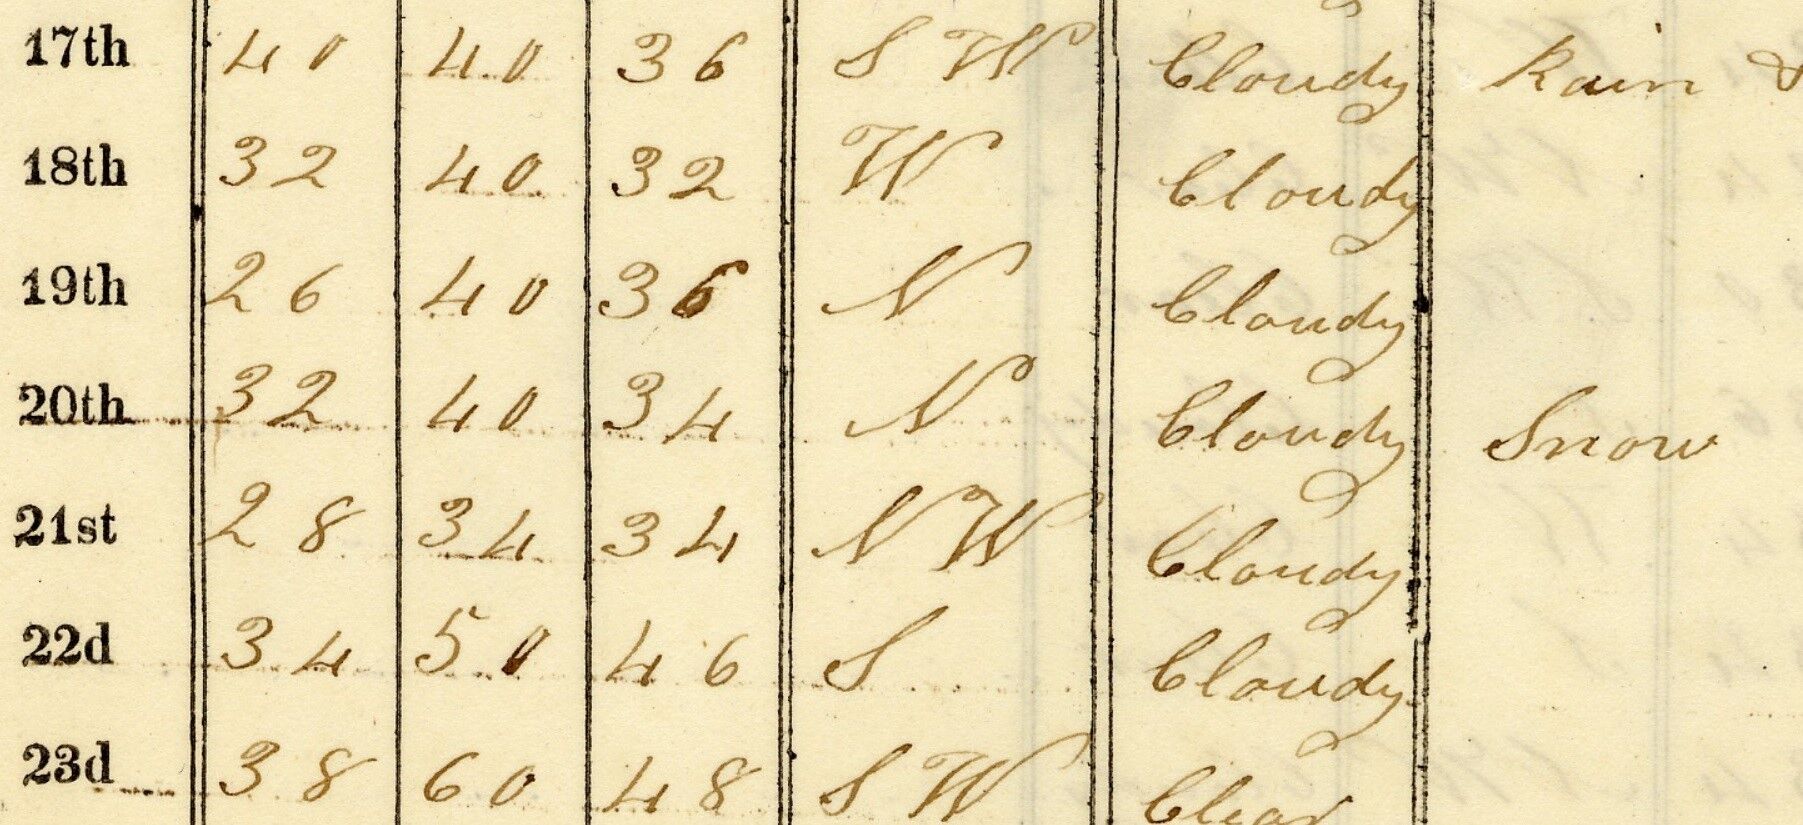 17th 40 40 36 S W Cloudy Rain &
18th 32 40 32 W Cloudy
19th 26 40 36 N Cloudy
20th 32 40 34 N Cloudy Snow
21st 28 34 34 N W Cloudy
22d 34 50 46 S Cloudy
23d 38 60 48 S W Clear